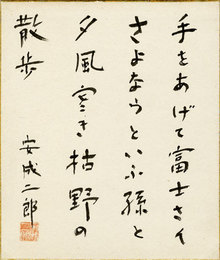 手をあげて富士さん
さよならといふ孫と
夕風寒き枯野の
散歩
安成二郎